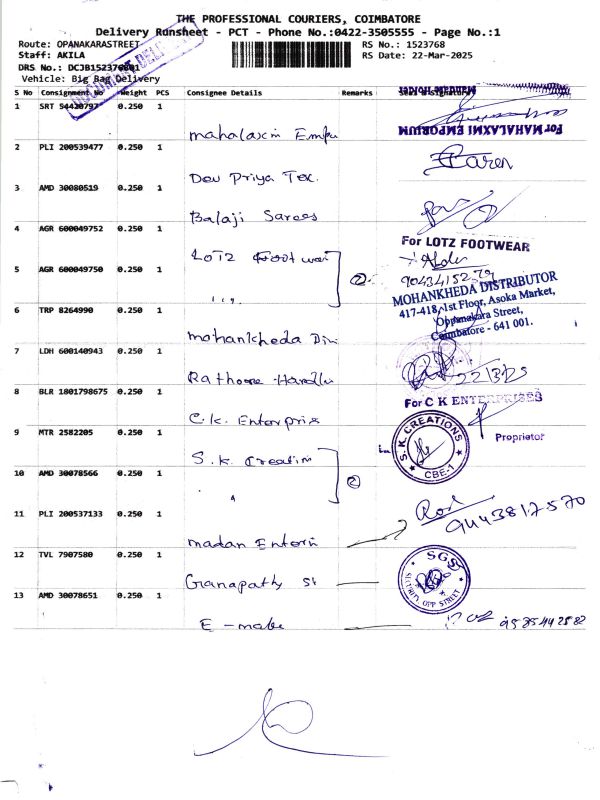 THE PROFESSIONAL COURIERS, COIMBATORE
Delivery Runsheet - PCT - Phone No.:0422-3505555 - Page No.:1
Route: OPANAKARASTREET
RS No.: 1523768
Staff: AKILA
RS Date: 22-Mar-2025
DRS No.: DCJB152376801
Vehicle: Big Bag Delivery
S No Consignment No Weight PCS Consignee Details Remarks Seal & Signature
1 SRT 54420797 0.250 1
mahalaxmi Empo
For MAHALAXMI EMPORIUM
2 PLI 200539477 0.250 1
Dev Priya Tex.
3 AMD 30080519 0.250 1
Balaji Sarees
4 AGR 600049752 0.250 1
LOTZ Foot wear
For LOTZ FOOTWEAR
5 AGR 600049750 0.250 1
" "
②
9043415279
MOHANKHEDA DISTRIBUTOR
417-418, 1st Floor, Asoka Market,
Oppanakara Street,
Coimbatore - 641 001.
6 TRP 8264990 0.250 1
mohankheda Dis
7 LDH 600140943 0.250 1
Rathore Handlu
22/3/25
8 BLR 1801798675 0.250 1
C.k. Enterprise
For C K ENTERPRISES
Proprietor
9 MTR 2582205 0.250 1
S.k. Creation
S.K. CREATIONS
CBE-1
10 AMD 30078566 0.250 1
"
②
11 PLI 200537133 0.250 1
madan Enterni
9443817570
12 TVL 7907580 0.250 1
Ganapathy St
SGS
SECURITY, OPP STREET
13 AMD 30078651 0.250 1
E-make
9585442582